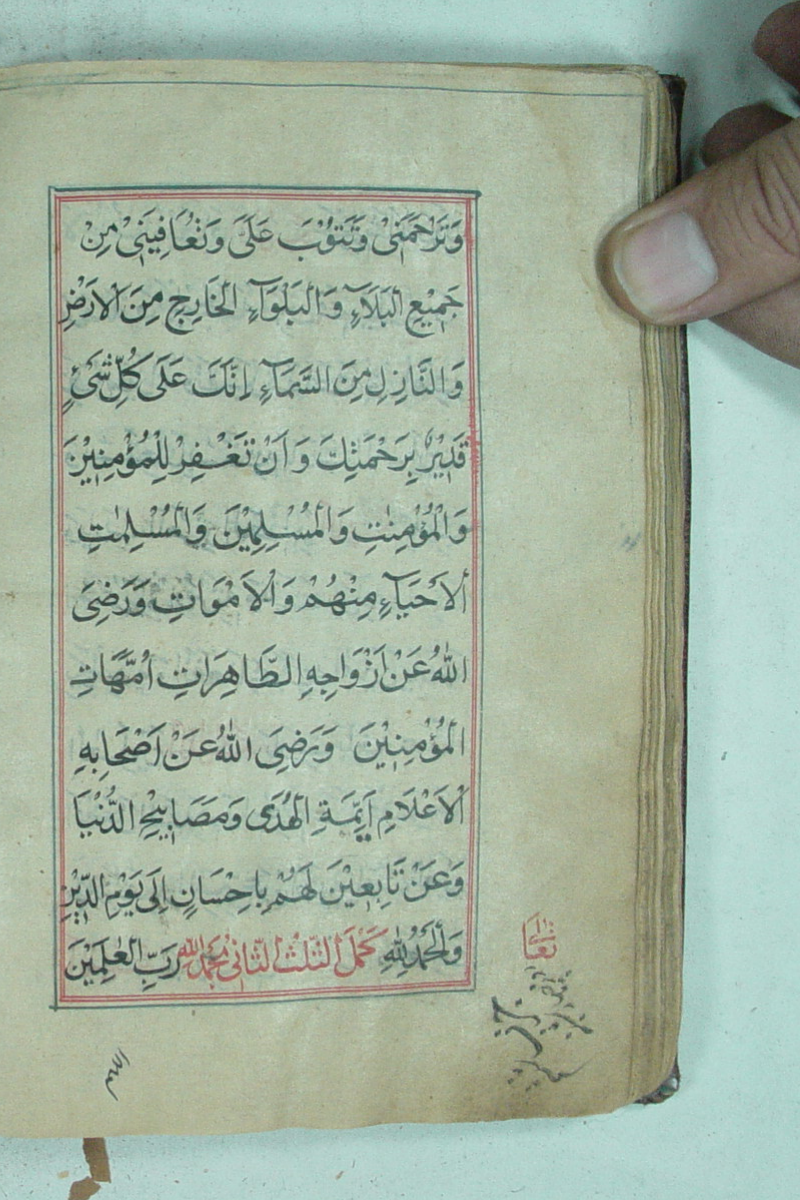 وَتَرَاحَمَنِىْ وَتَتُوْبَ عَلَىَّ وَتُعَافِيَنِىْ مِنْ
جَمِيْعِ الْبَلَآءِ وَالْبَلْوَآءِ الْخَارِجِ مِنَ الْاَرْضِ
وَالنَّازِلِ مِنَ السَّمَآءِ اِنَّكَ عَلَى كُلِّ شَىْءٍ
قَدِيْرٌ بِرَحْمَتِكَ وَاَنْ تَغْفِرْ لِلْمُؤْمِنِيْنَ
وَالْمُؤْمِنٰتِ وَالْمُسْلِمِيْنَ وَالْمُسْلِمٰتِ
اَلْاَحْيَآءِ مِنْهُمْ وَالْاَمْوَاتِ وَرَضِىَ
اللّٰهُ عَنْ اَزْوَاجِهِ الطَّاهِرَاتِ اُمَّهَاتِ
الْمُؤْمِنِيْنَ وَرَضِىَ اللّٰهُ عَنْ اَصْحَابِهِ
الْاَعْلَامِ اَئِمَّةِ الْهُدٰى وَمَصَابِيْحِ الدُّنْيَا
وَعَنْ تَابِعِيْنَ لَهُمْ بِاِحْسَانٍ اِلَى يَوْمِ الدِّيْنِ
وَالْحَمْدُ لِلّٰهِ كَمَلَ الثُّلُثُ الثَّانِىْ بِحَمْدِ اللّٰهِ رَبِّ الْعٰلَمِيْنَ